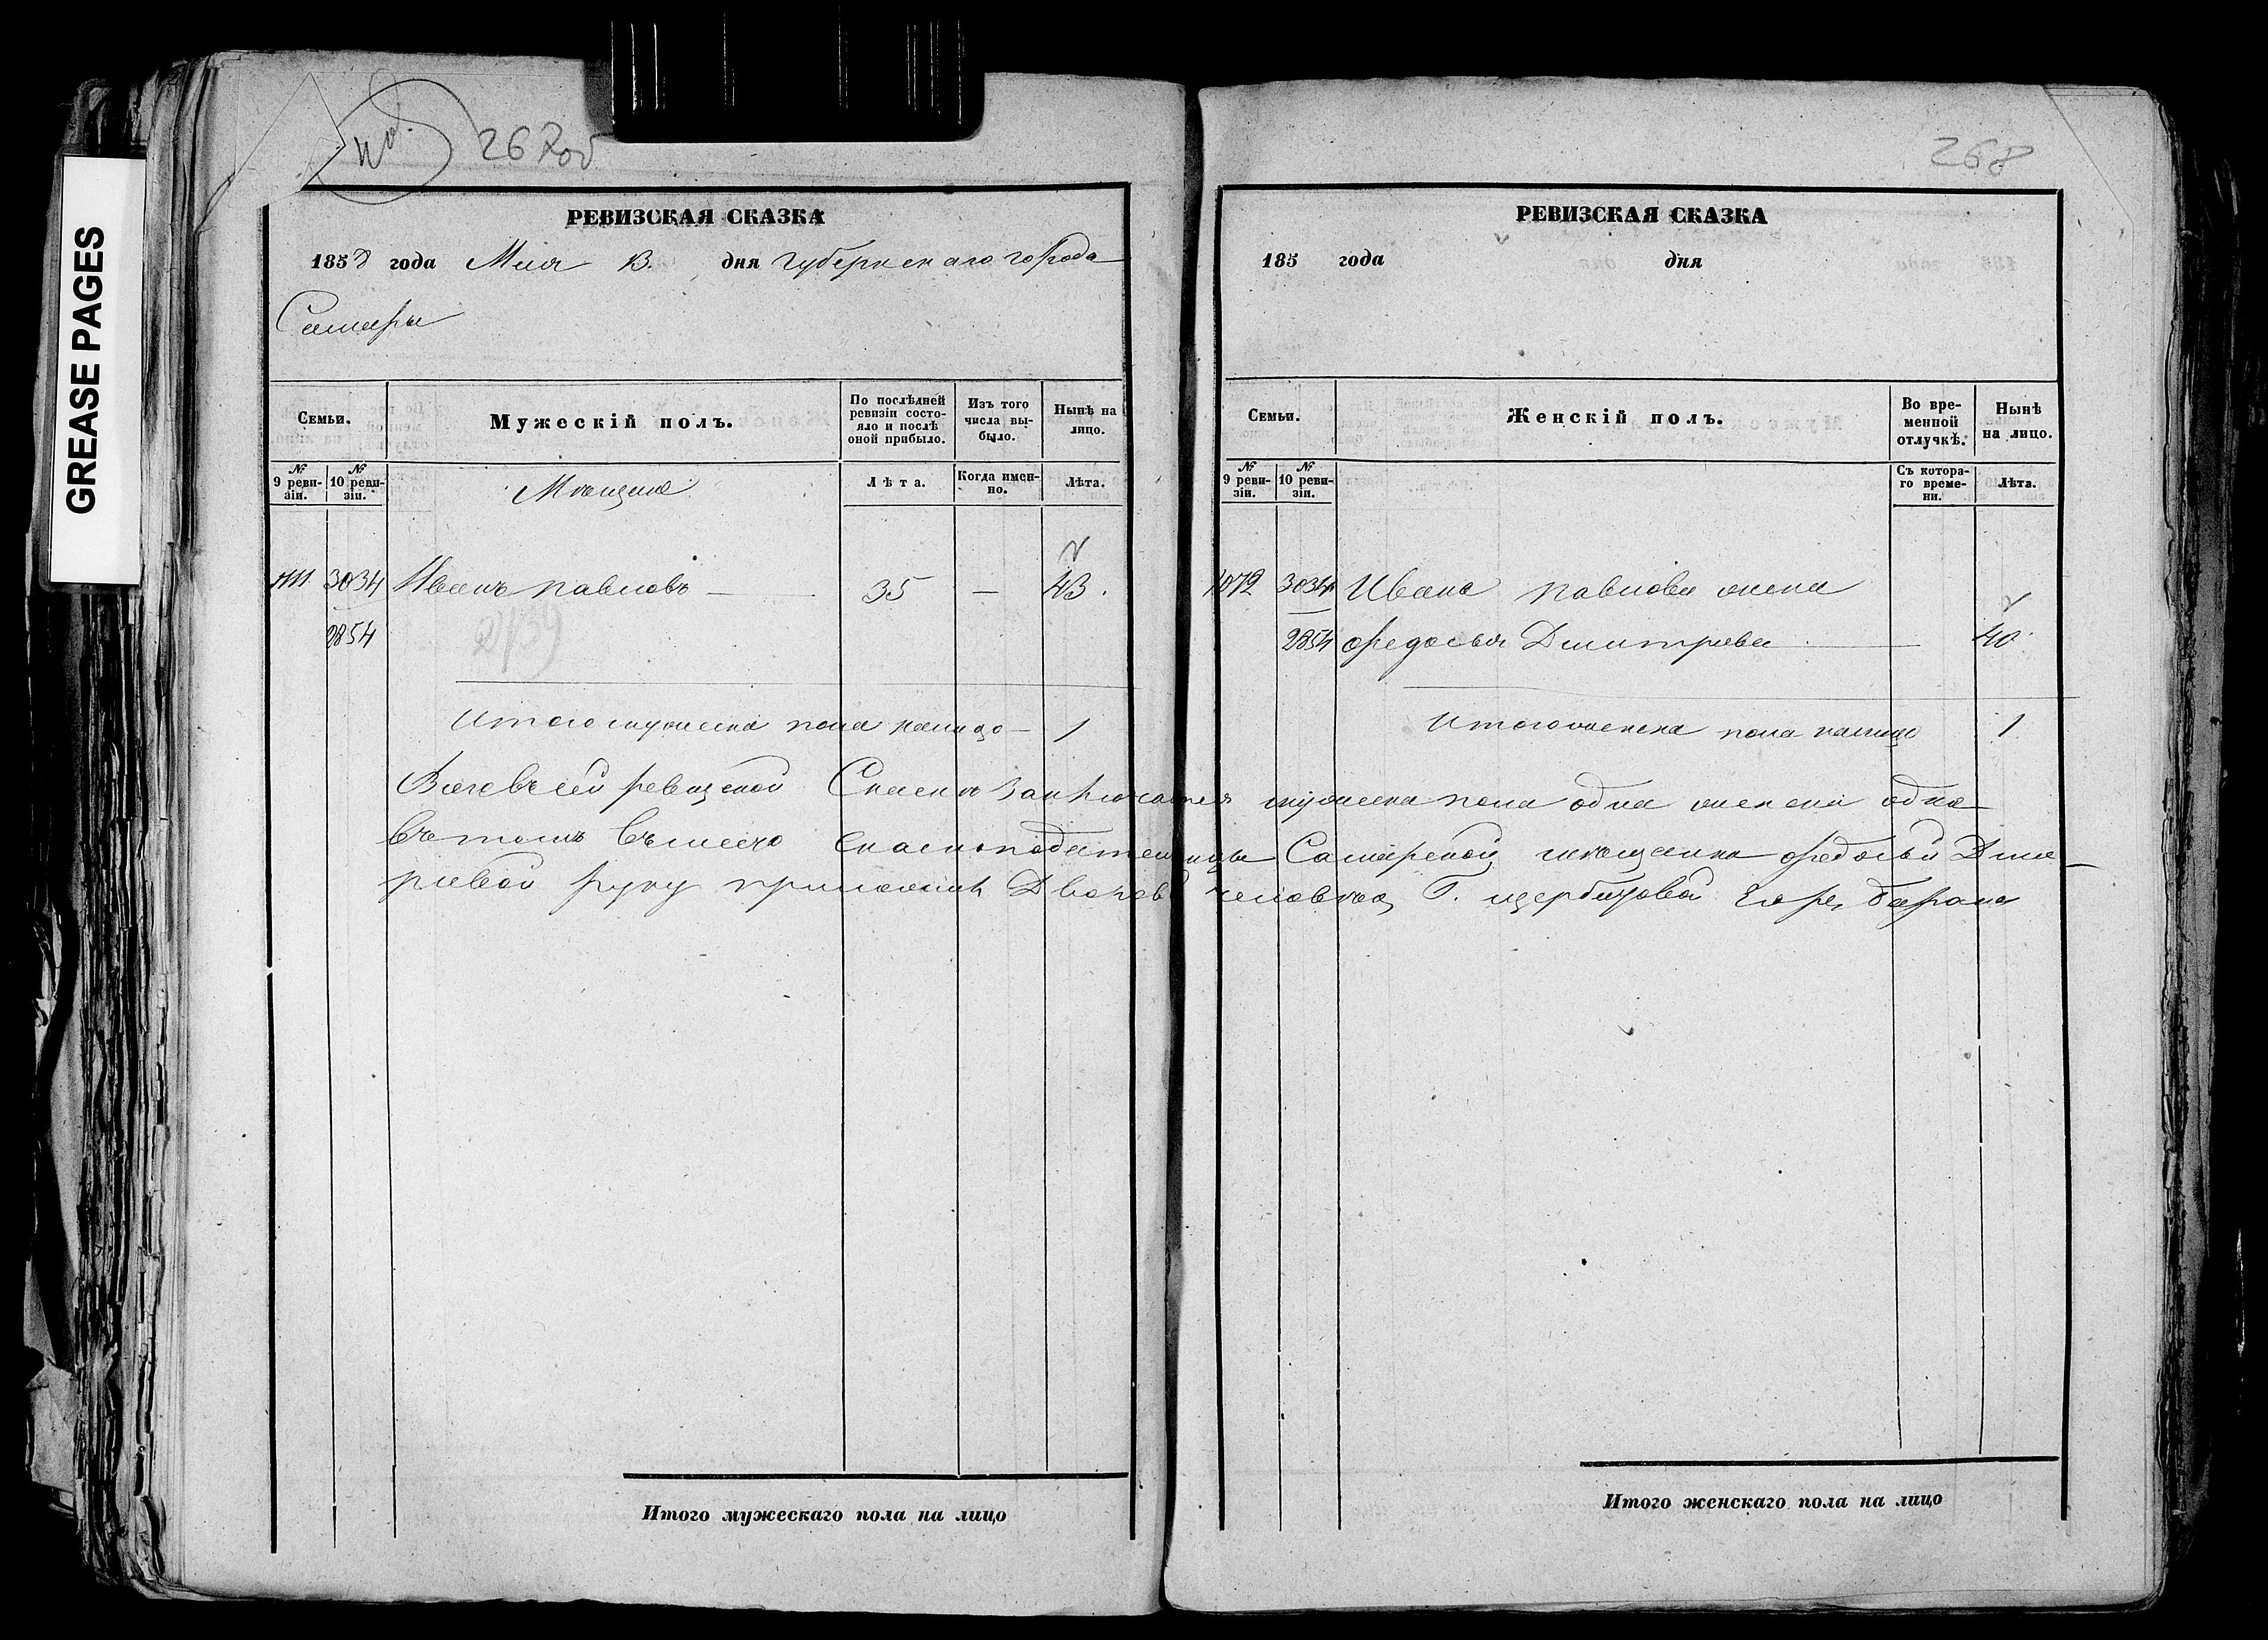 GREASE PAGES
267об
РЕВИЗСКАЯ СКАЗКА
1858 года Мая 13. дня губернскаго города
Самары
Семьи.
Мужескій полъ.
По послѣдней ревизіи состо-
яло и послѣ оной прибыло.
Изъ того числа вы-
было.
Нынѣ на лицо.
№ 9 реви-
зіи.
№ 10 реви-
зіи.
Мѣщане
Лѣта.
Когда имен-
но.
Лѣта.
1111. 3034 Иванъ павловъ — 35 — 43.
2854
Итого мужеска пола налицо — 1
Итого мужескаго пола на лицо
268
РЕВИЗСКАЯ СКАЗКА
185 года дня
Семьи.
Женскій полъ.
Во вре-
менной отлучкѣ.
Нынѣ на лицо.
№ 9 реви-
зіи.
№ 10 реви-
зіи.
Съ котора-
го време-
ни.
Лѣта.
3034 Ивана павлова жена
2854 Федосья Дмитрева 40
Итого женска пола налицо 1
Всего въ сей ревизской Сказки заключается мужеска пола одна женска одна
въ томъ вместо сказкоподательницы Самарской мещанки Федосьи Дмит
ривой руку приложилъ Дворов человекъ Г. щербачовой
Итого женскаго пола на лицо